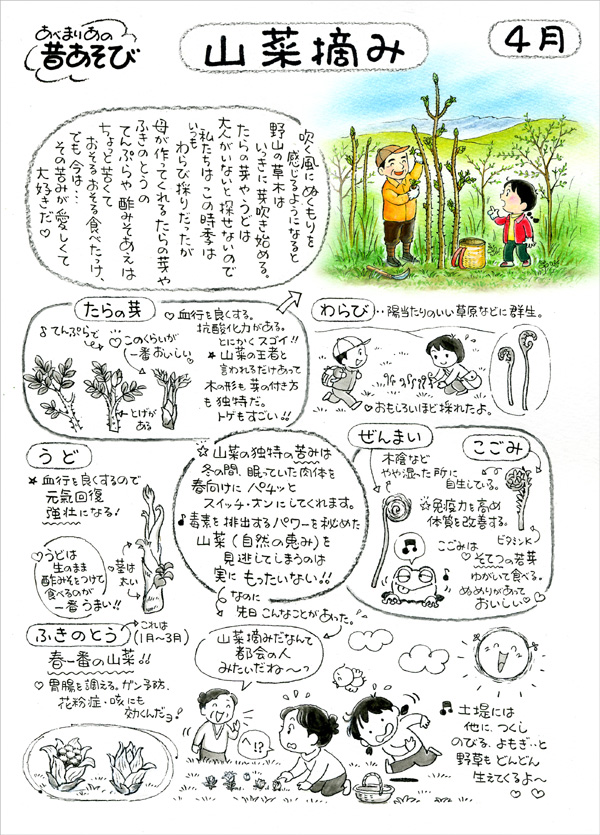 あべまりあの
昔あそび
山菜摘み
4月
吹く風にぬくもりを
感じるようになると
野山の草木は
いっきに芽吹き始める。
たらの芽やうどは
大人がいないと探せないので
私たちはこの時季は
いつも
わらび採りだったが
母が作ってくれるたらの芽や
ふきのとうの
てんぷらや酢みそあえは
ちょっと苦くて
おそるおそる食べたっけ、
でも今は…
その苦みが愛しくて
大好きだ♡
たらの芽
♪てんぷらで
♡このくらいが
一番おいしい
←とげが
ある
♡血行を良くする。
抗酸化力がある。
とにかくスゴイ!!
★山菜の王者と
言われるだけあって
木の形も芽の付き方
も独特だ。
トゲもすごい!!
わらび
‥陽当たりのいい草原などに群生。
♡おもしろいほど採れたよ。
うど
★血行を良くするので
元氣回復
強壮になる!
♡うどは
生のまま
酢みそをつけて
食べるのが
一番うまい!!
←茎は
太い
☆山菜の独特の苦みは
冬の間、眠っていた肉体を
春向けにパチッと
スイッチ・オンにしてくれます。
♪毒素を排出するパワーを秘めた
山菜(自然の恵み)を
見逃してしまうのは
実にもったいない!!
なのに
先日こんなことがあった。
ぜんまい
こごみ
木陰など
やや湿った所に
自生している。
☆免疫力を高め
体質を改善する。
ビタミンK
こごみは
♡そてつの若芽
ゆがいて食べる。
ぬめりがあって
おいしい♡
ふきのとう
これは
(1月~3月)
春一番の山菜!!
♡胃腸を調える。ガン予防、
花粉症・咳にも
効くんだョ!
山菜摘みだなんて
都会の人
みたいだね~っ
へ!?
♪土堤には
他に、つくし
のびる、よもぎ…と
野草もどんどん
生えてくるよ~
♡♡